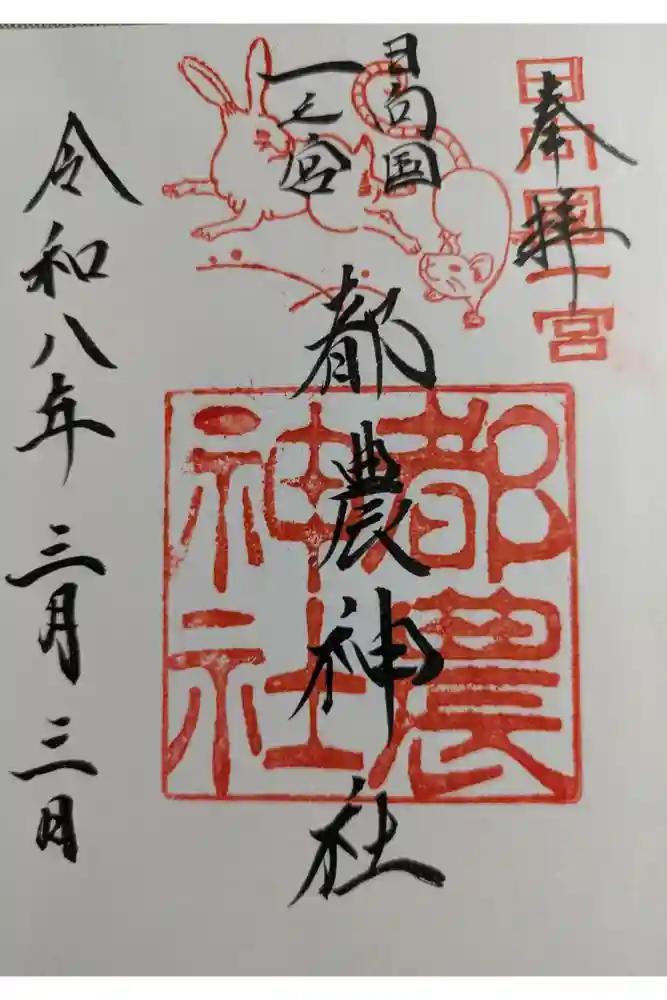 奉拝
日向國一宮
日向国
一之宮
都農神社
都農神社
令和八年三月三日